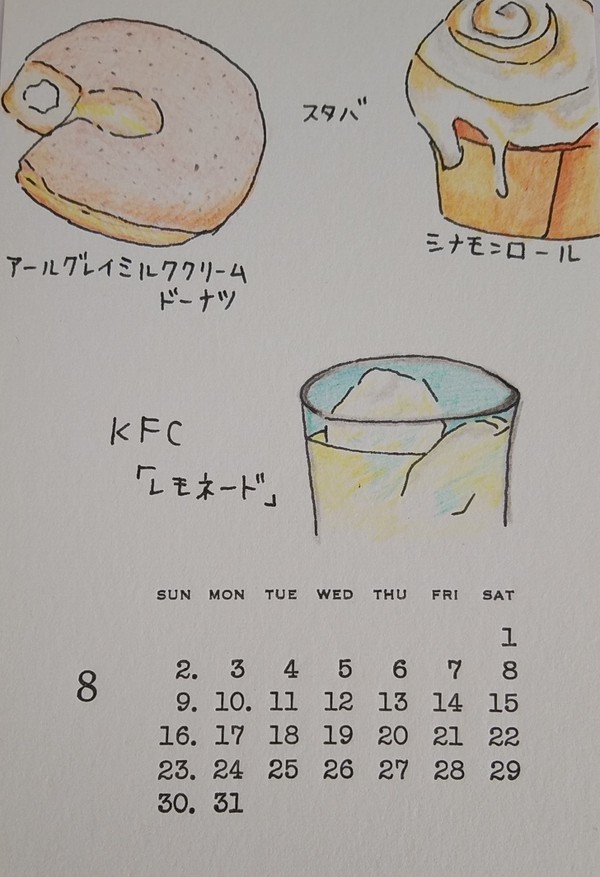 スタバ
シナモンロール
アールグレイミルククリーム
ドーナツ
KFC
「レモネード」
SUN MON TUE WED THU FRI SAT
1
8
2. 3 4 5 6 7 8
9. 10. 11 12 13 14 15
16. 17 18 19 20 21 22
23. 24 25 26 27 28 29
30. 31